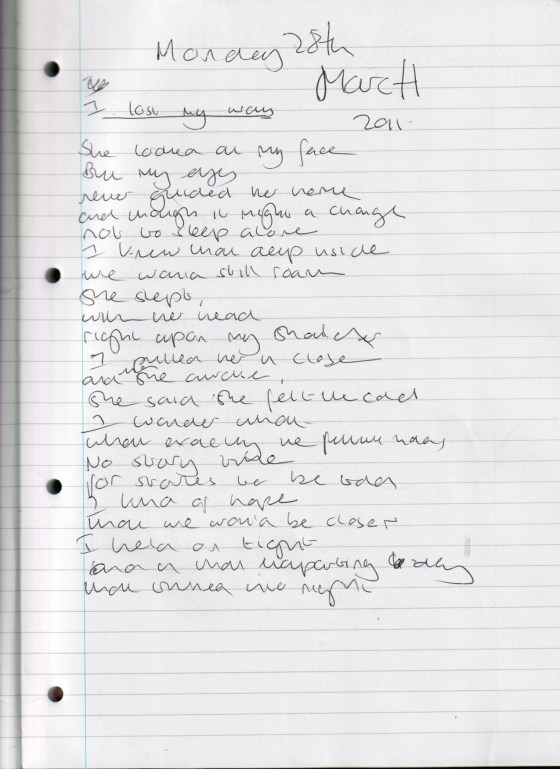 Monday 28th
March
2011.
I lost my way
She looked at my face
But my eyes
never guided her home
and though it might a change
not to sleep alone
I knew that deep inside
we would still roam
She slept,
with her head
right upon my shoulder
I pulled her in close
and she awoke,
She said she felt the cold
I wonder what
what exactly the future holds
No story
for stories to be told
I kind of hope
that we would be closer
I held on tight
and in that day
that turned into night